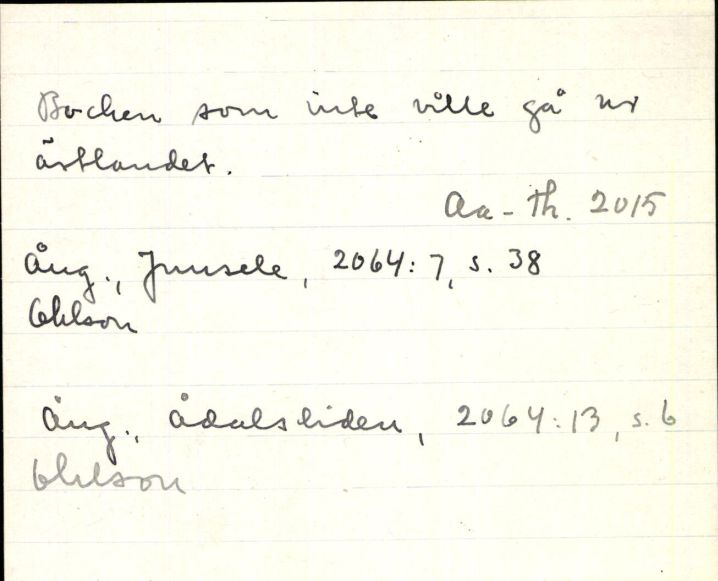 Bocken som inte ville gå ur
ärtlandet.
Aa-Th. 2015
Ång., Junsele, 2064:7, s. 38
Ohlson
Ång., Ådalsliden, 2064:13, s. 6
Ohlson